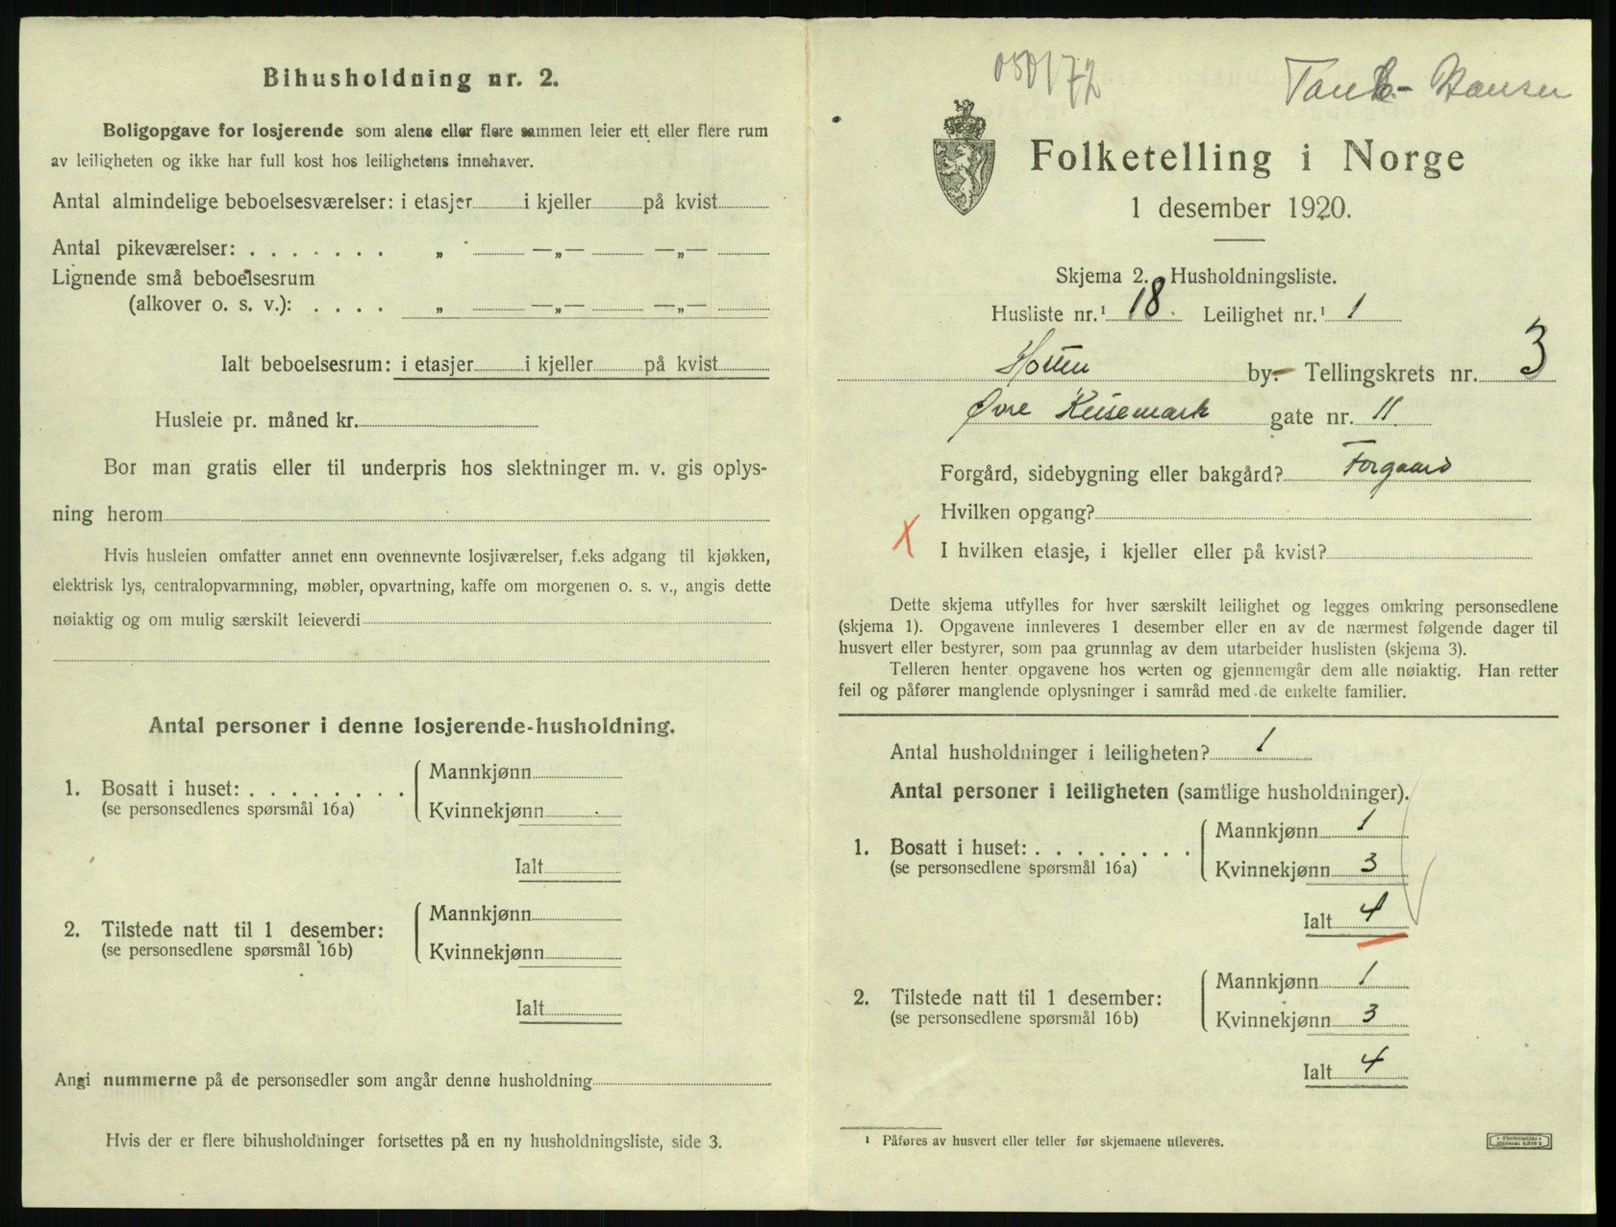 Bihusholdning nr. 2.
Boligopgave for losjerende som alene eller flere sammen leier ett eller flere rum
av leiligheten og ikke har full kost hos leilighetens innehaver.
Antal almindelige beboelsesværelser: i etasjer i kjeller på kvist
Antal pikeværelser: . . . . . . . „ —„— —„—
Lignende små beboelsesrum
(alkover o. s. v.): . . . . „ —„— —„—
Ialt beboelsesrum: i etasjer i kjeller på kvist
Husleie pr. måned kr.
Bor man gratis eller til underpris hos slektninger m. v. gis oplys-
ning herom
Hvis husleien omfatter annet enn ovennevnte losjiværelser, f.eks adgang til kjøkken,
elektrisk lys, centralopvarmning, møbler, opvartning, kaffe om morgenen o. s. v., angis dette
nøiaktig og om mulig særskilt leieverdi
Antal personer i denne losjerende-husholdning.
1. Bosatt i huset: . . . . . . . . Mannkjønn
(se personsedlenes spørsmål 16a) Kvinnekjønn
Ialt
2. Tilstede natt til 1 desember: Mannkjønn
(se personsedlene spørsmål 16b) Kvinnekjønn
Ialt
Angi nummerne på de personsedler som angår denne husholdning
Hvis der er flere bihusholdninger fortsettes på en ny husholdningsliste, side 3.
050172
Hansen
Folketelling i Norge
1 desember 1920.
Skjema 2. Husholdningsliste.
Husliste nr.¹ 18. Leilighet nr.¹ 1
Horten by. Tellingskrets nr. 3
Øvre Keisemark gate nr. 11
Forgård, sidebygning eller bakgård? Forgaard
Hvilken opgang?
X I hvilken etasje, i kjeller eller på kvist?
Dette skjema utfylles for hver særskilt leilighet og legges omkring personsedlene
(skjema 1). Opgavene innleveres 1 desember eller en av de nærmest følgende dager til
husvert eller bestyrer, som paa grunnlag av dem utarbeider huslisten (skjema 3).
Telleren henter opgavene hos verten og gjennemgår dem alle nøiaktig. Han retter
feil og påfører manglende oplysninger i samråd med de enkelte familier.
Antal husholdninger i leiligheten? 1
Antal personer i leiligheten (samtlige husholdninger).
1. Bosatt i huset: . . . . . . . . Mannkjønn 1
(se personsedlene spørsmål 16a) Kvinnekjønn 3
Ialt 4
2. Tilstede natt til 1 desember: Mannkjønn 1
(se personsedlene spørsmål 16b) Kvinnekjønn 3
Ialt 4
¹ Påføres av husvert eller teller før skjemaene utleveres.